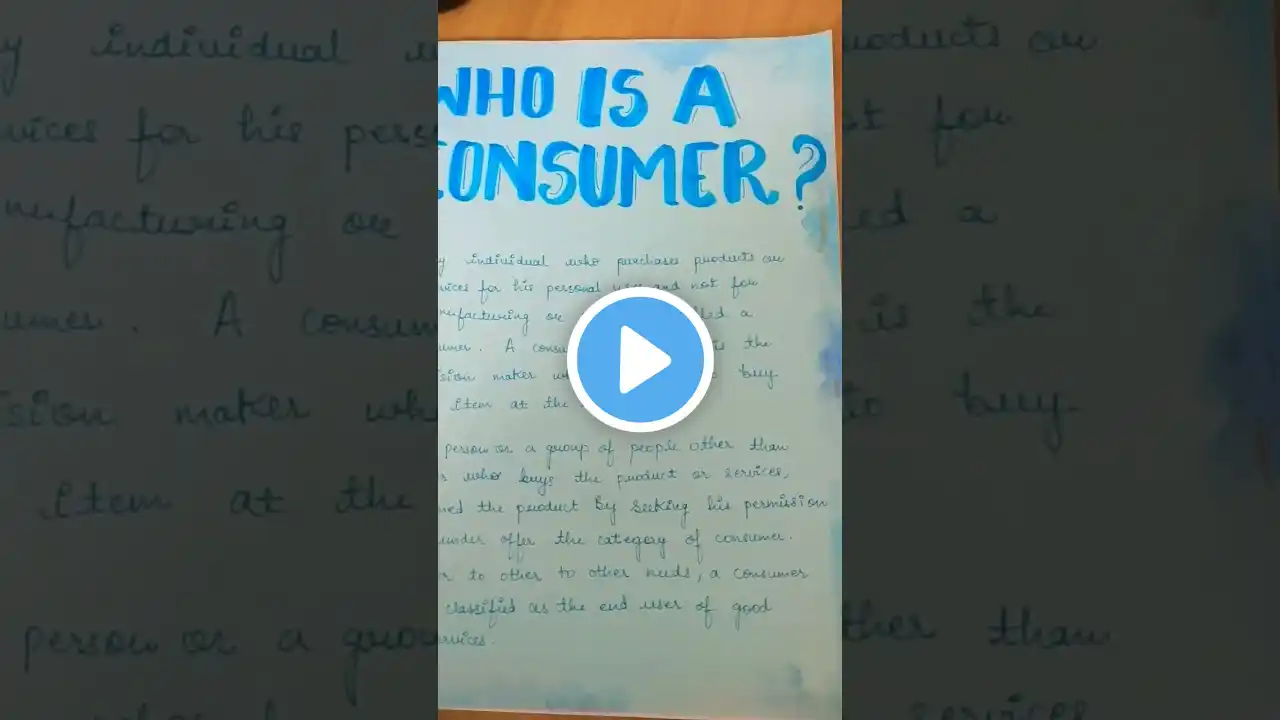 WHO IS A
CONSUMER?
y individual who purchases products or
vices for his personal use and not for
nufacturing or led a
umer. A consu is the
ision maker wh to buy
item at the
person or a group of people other than
s who buys the product or services,
med the product By seeking his permission
under offer the category of consumer.
r to other to other needs, a consumer
classified as the end user of good
rvices.